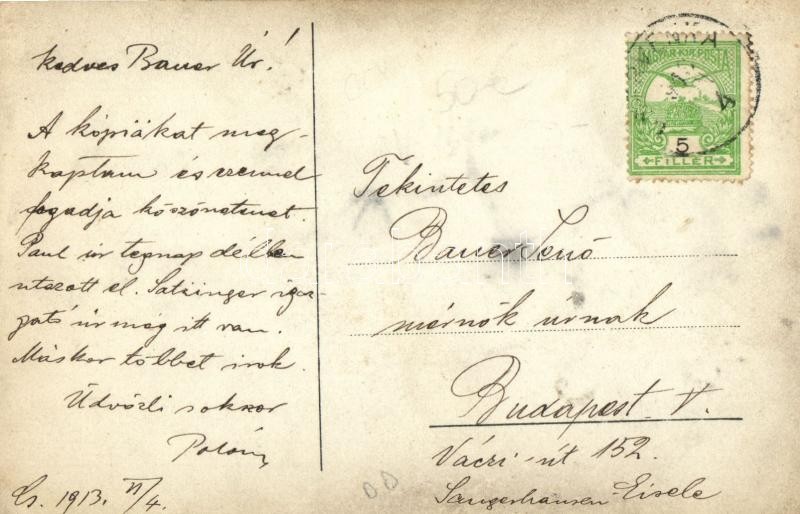 Kedves Bauer Úr!
A kópiákat meg-
kaptam és ezennel
fogadja köszönetemet.
Paul úr tegnap délben
utazott el. Satzinger igaz-
gató úr még itt van.
Máskor többet irok.
Üdvözli sokszor
1913. VI/4.
MAGYAR KIR. POSTA
5
FILLÉR
Tekintetes
Bauer Jenő
mérnök úrnak
Budapest. V.
Váczi-út 152.
Sangerhausen-Eisele